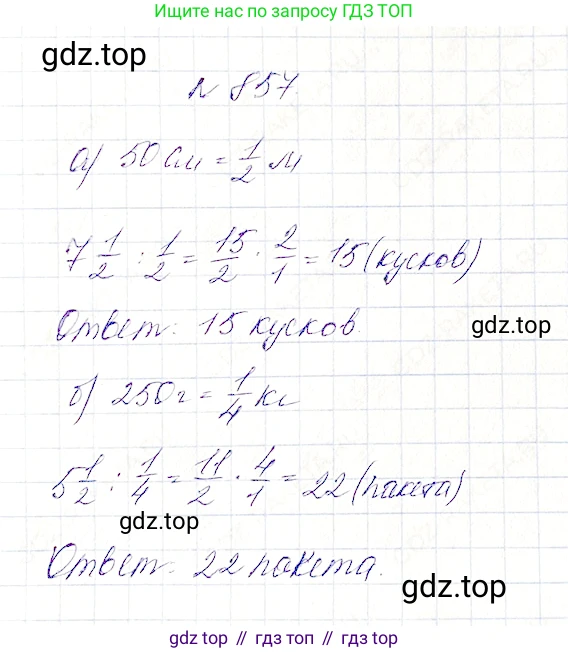 Ищите нас по запросу ГДЗ ТОП
gdz.top
№ 857.
а) 50 см = 1/2 м
7 1/2 : 1/2 = 15/2 · 2/1 = 15 (кусков)
Ответ: 15 кусков
gdz.top
б) 250 г = 1/4 кг
5 1/2 : 1/4 = 11/2 · 4/1 = 22 (пакета)
gdz.top
Ответ: 22 пакета.
gdz.top
gdz top // гдз топ // gdz.top